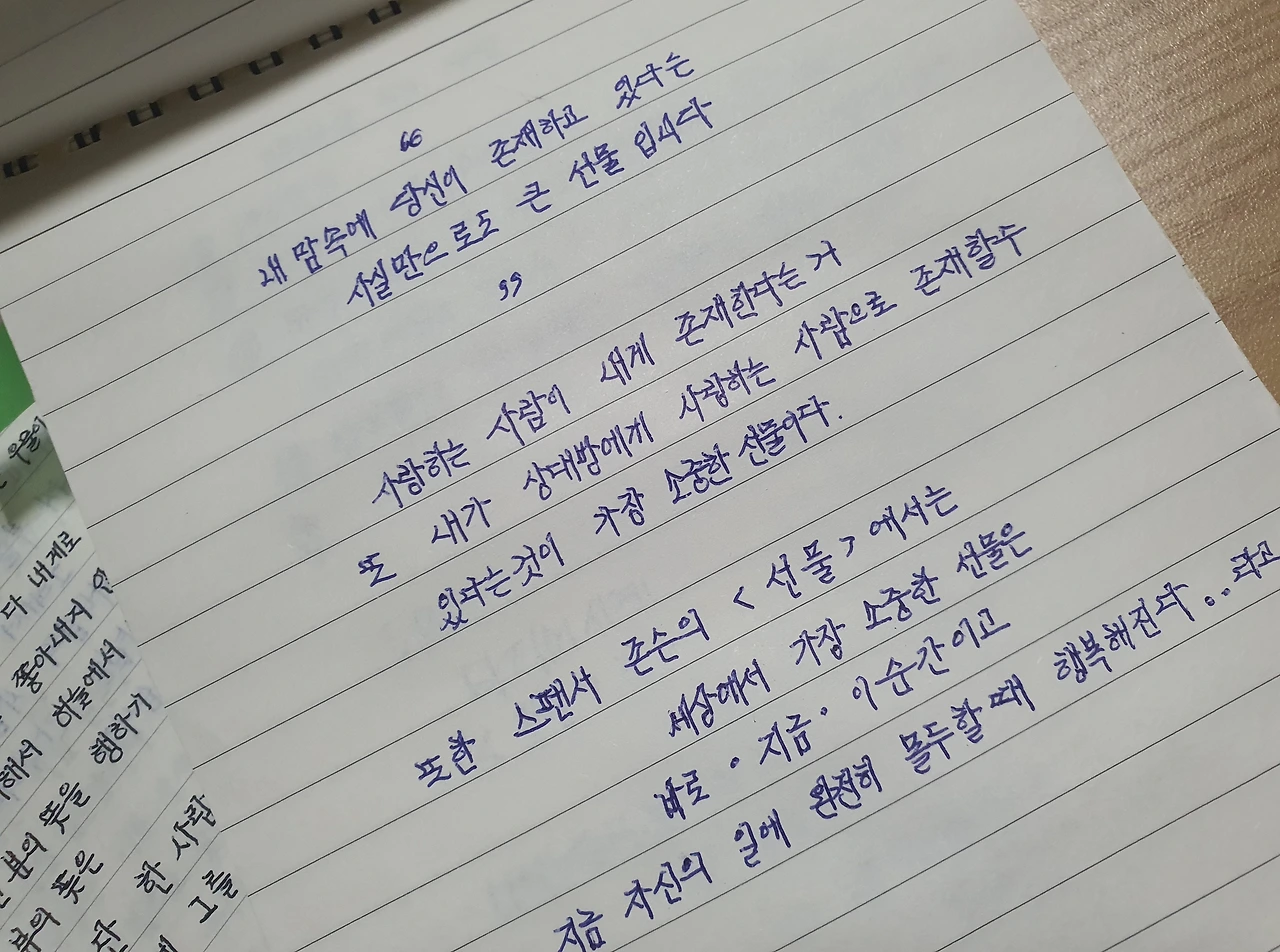 “
내 맘속에 당신이 존재하고 있다는
사실만으로도 큰 선물 입니다
”
사랑하는 사람이 내게 존재한다는 거
또 내가 상대방에게 사랑하는 사람으로 존재할수
있다는것이 가장 소중한 선물이다.
또한 스펜서 존슨의 <선물> 에서는
세상에서 가장 소중한 선물은
바로 · 지금 · 이순간이고
지금 자신의 일에 완전히 몰두할 때 행복해진다 .. 라고
우울이
다 내게로
쫓아내지
해서 하늘에서
행하기
분의 뜻을
뜻은
한 사람
그를